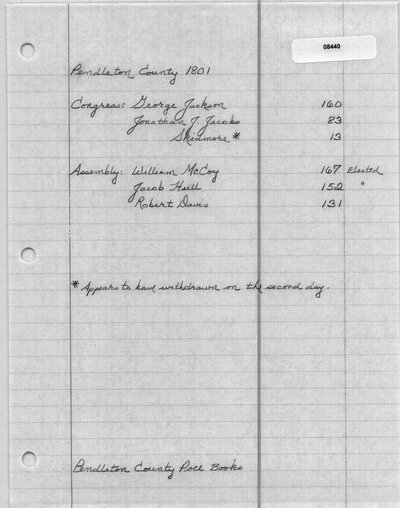 08440
Pendleton County 1801
Congress: George Jackson 160
Jonathan J. Jacobs 83
Skidmore * 13
Assembly: William McCoy 167 Elected
Jacob Hull 152 "
Robert Davis 131
* Appears to have withdrawn on the second day.
Pendleton County Poll Books